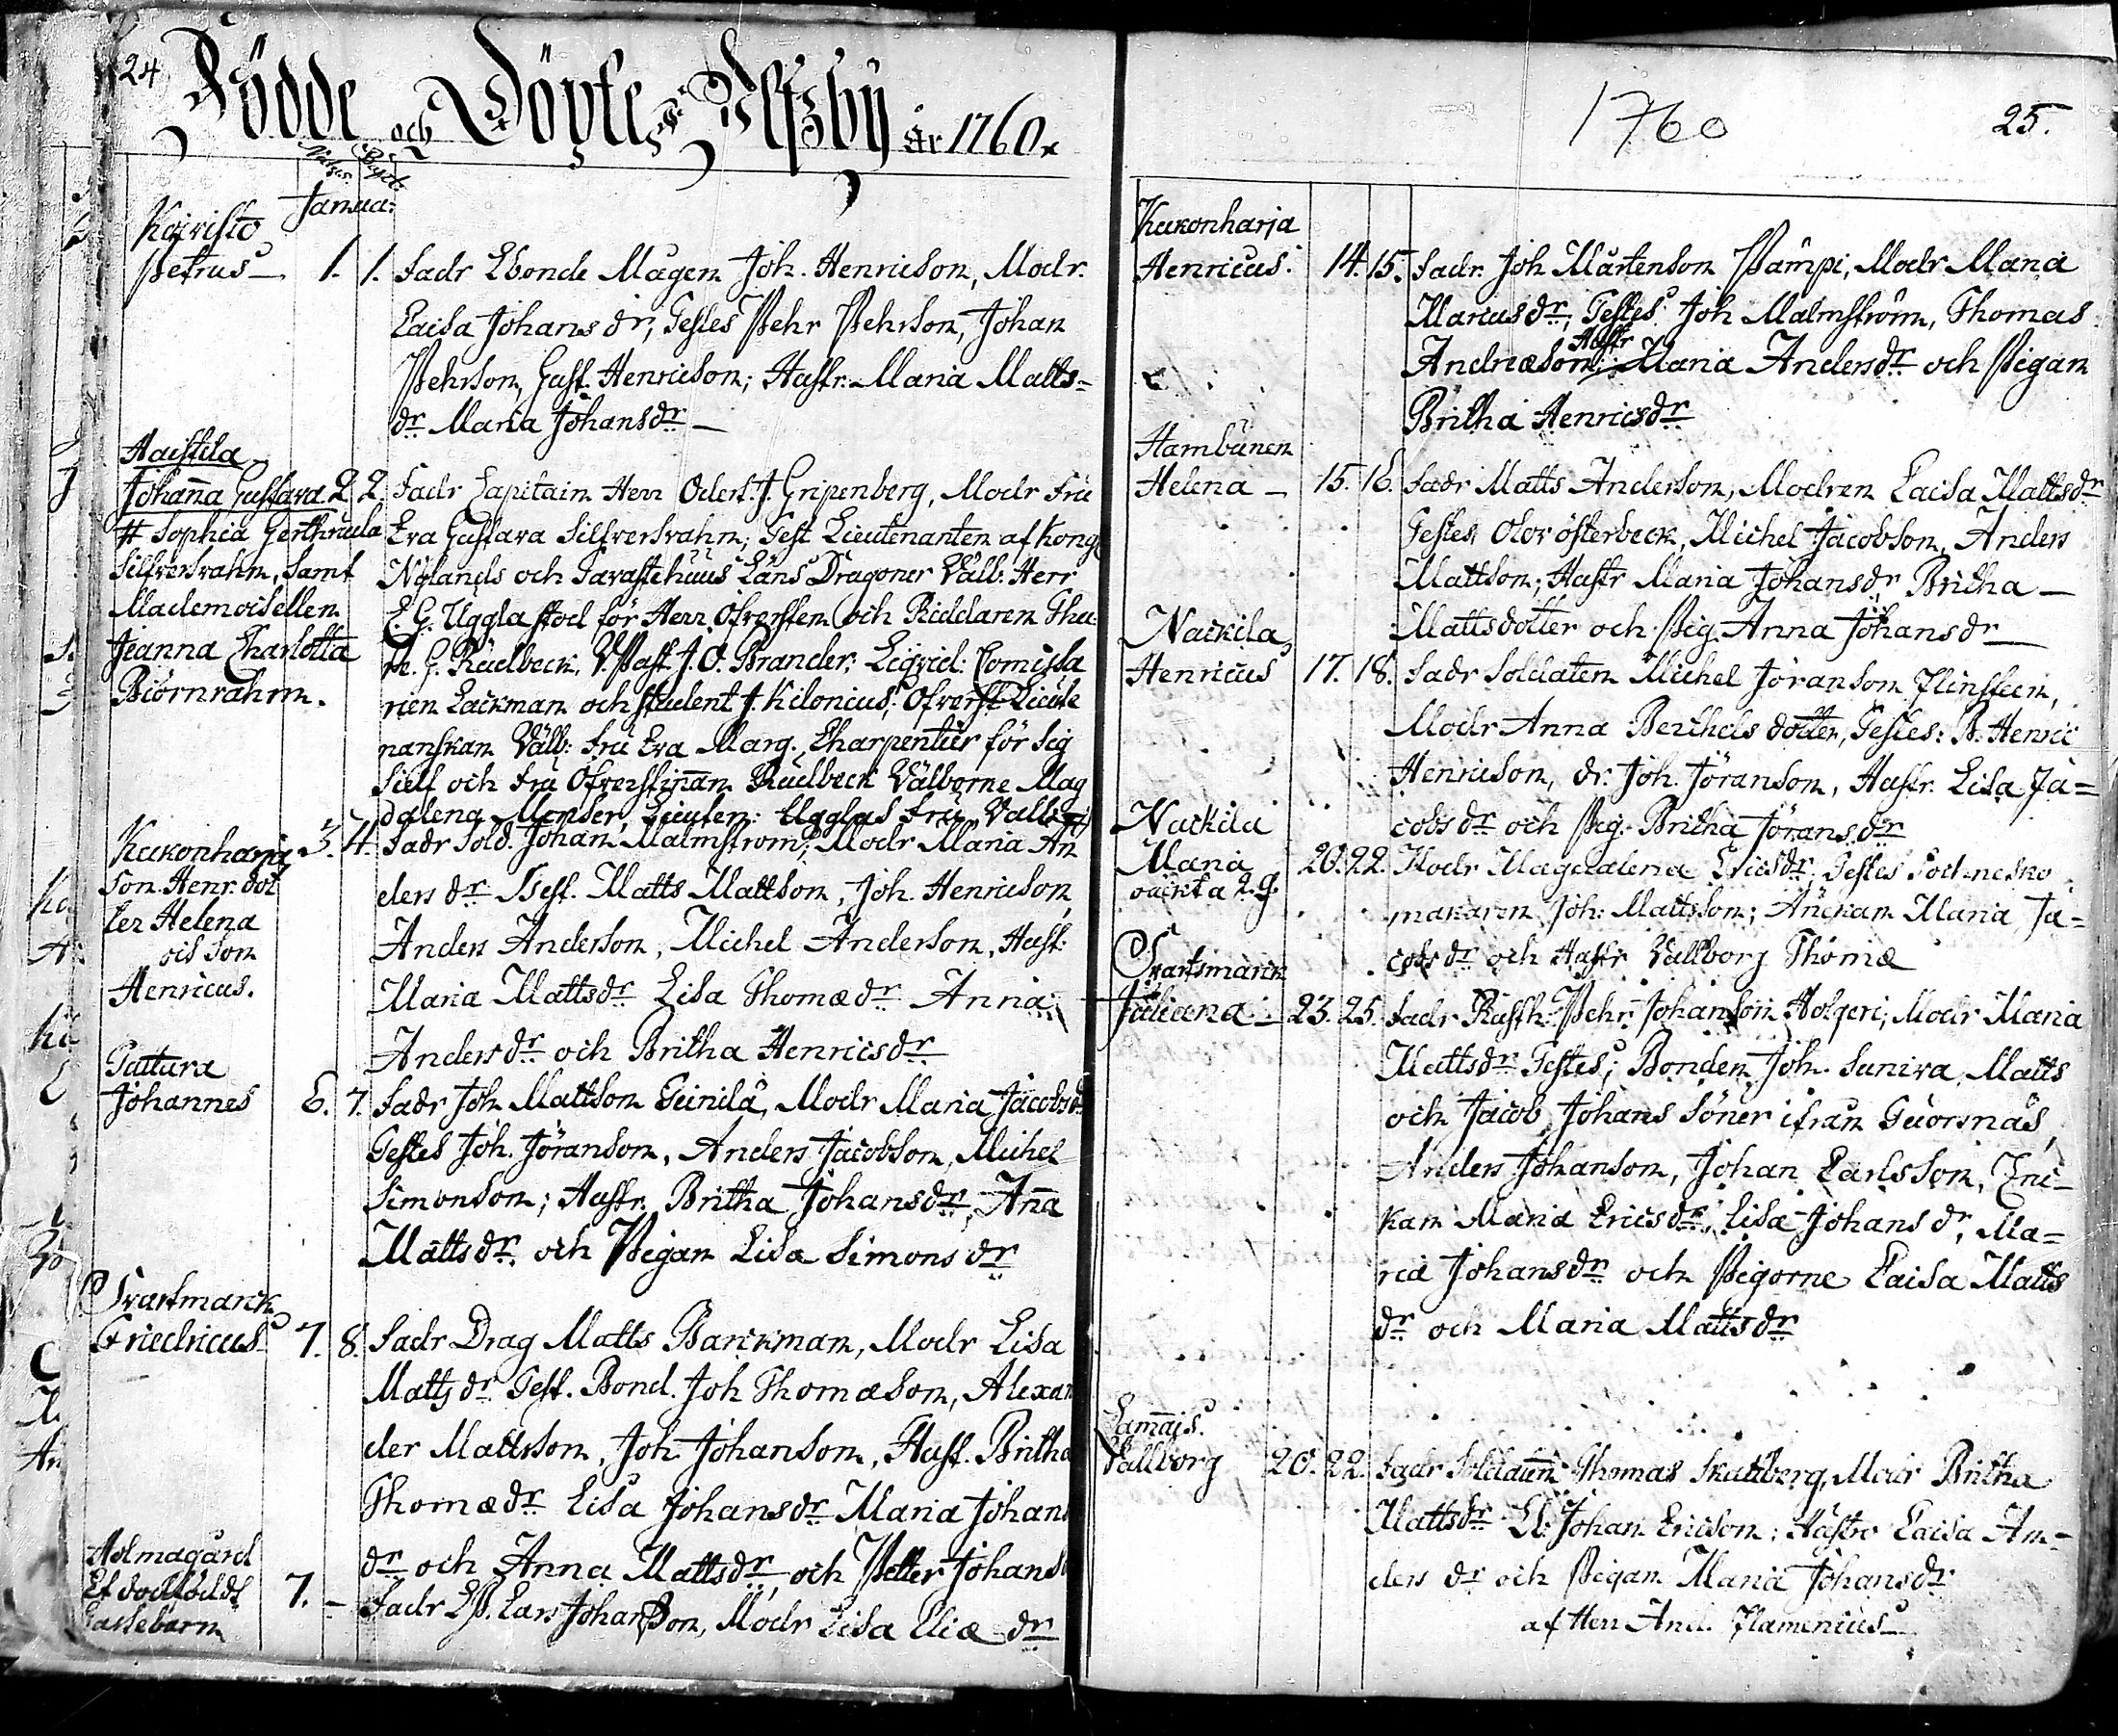 24 Födde och Döpte Ulfsby år 1760.
Natus. Bapt.
Janua:
Koivisto
Petrus 1. 1. Fadr Ebonde Mågen Joh. Henricson, Modr.
Caisa Johans dr, Testes Pehr Pehrson, Johan
Pehrson, Gust. Henricson; Hustr. Maria Matts=
dr Maria Johansdr
Haistila
Johanna Gustava 2 2. Fadr Capitain Herr Odert. J. Gripenberg, Modr Fru
# Sophia Gerthruda Eva Gustava Silfversvahn; Test Lieutenanten af Kongl
Silfversvahn, Samt Nylands och Tavastehuus Läns Dragoner Välb: Herr
Mademoisellen C. G. Uggla stod för Herr Öfversten och Riddaren Thu:
Jeanna Charlotta re. G. Rudbeck, V. Past. J. O. Brander, Liqvid: Comissa
Biörnrahm. rien Lackman och student J. Kilonius; Öfverst Lieute
nanskan Välb: Fru Eva Marg. Charpentier för sig
sielf och Fru Öfverstinnan Rudbeck Välborne Mag
dalena Menser, Lieuten: Ugglas Fru, Vallborg
Kukonharja 3. 4. Fadr Sold. Johan Malmström; Modr Maria An
son Henr. dot ders dr Test. Matts Mattson, Joh. Henricson,
ter Helena Anders Anderson, Michel Anderson, Hust:
och son Maria Mattsdr Lisa Thomædr Anna
Henricus. Andersdr och Britha Henricsdr
Tattara
Johannes 6. 7. Fadr Joh Mattson Teinilä, Modr Maria Jacobsdr
Testes Joh. Jöranson, Anders Jacobson, Michel
Simonson; Hustr. Britha Johansdr, Anna
Mattsdr och Pigan Lisa Simons dr
Svartmarck
Friedricus 7. 8. Fadr Drag Matts Barckman, Modr Lisa
Matts dr Test. Bond. Joh Thomæson, Alexan
der Mattsson, Joh Johanson, Hust. Britha
Thomædr Lisa Johansdr Maria Johans
dr och Anna Mattsdr, och Petter Johans
Holmagård
Et dödfödt 7. Fadr Lars Johansson, Modr Lisa Eliæ dr
Gassebarn
1760
25.
Kukonharja
Henricus. 14. 15. Fadr. Joh Mårtenson Pämpi, Modr Maria
Marcusdr, Testes Joh Malmström, Thomas
Hustr
Andreæson; Maria Andersdr och Pigan
Britha Henricsdr
Hambünen
Helena 15. 16. Fadr Matts Anderson, Modren Caisa Mattsdr
Testes Olov Österbeck, Michel Jacobson, Anders
Mattson; Hustr Maria Johansdr Britha
Mattsdotter och Pig. Anna Johansdr
Nackila
Henricus 17. 18. Fadr Soldaten Michel Jöranson Flinsteen,
Modr Anna Berthels dotter, Testes: B. Henric
Henricson, dr. Joh. Jöranson, Hustr. Lisa Ja=
cobs dr och Pig. Britha Jöransdr
Nackila
Maria 20. 22. Modr Magdalena Ericsdr, Testes Sochnesko
oäckta 2. g. makaren Joh: Mattsson; Änckan Maria Ja=
cobs dr och Hustr Vallborg Thomæ
Svartsmarck
Juliana 23. 25. Fadr Rusth. Pehr Johanson Holgeri; Modr Maria
Mattsdr Testes; Bonden Joh. Saniva, Matts
och Jacob Johans Söner ifrån Tuorsnäs,
Anders Johanson, Johan Carlsson, Enc-
kan Maria Ericsdr, Lisa Johans dr, Ma=
ria Johansdr och Pigorne Caisa Matts
dr och Maria Mattsdr
Lamais.
Vallborg 20. 22. Fadr Soldaten Thomas Skattberg, Modr Britha
Mattsdr Johan Ericson; Hustro Caisa An-
ders dr och Pigan Maria Johansdr
af Herr And. Flamenius